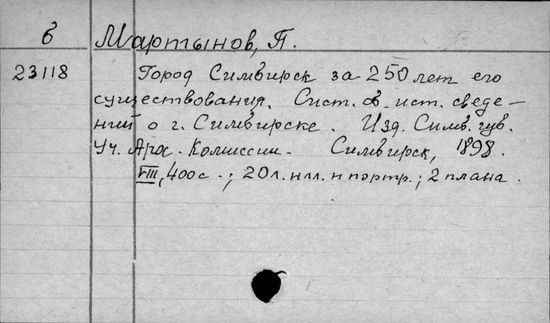 б Мартынов, П.
23118 Город Симбирск за 250 лет его
существования. Сист. сб. ист. сведе-
ний о г. Симбирске. Изд. Симб. губ.
Уч. Арх. Комиссии. Симбирск, 1898.
VIII, 400 с.; 20 л. илл. и портр.; 2 плана.